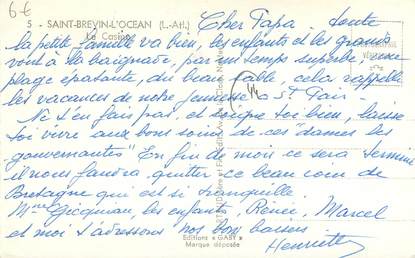 6€
5 - SAINT-BREVIN-L'OCEAN (L.-Atl.)
Le Casino
Cher Papa toute
la petite famille va bien, les enfants et les grands
vont à la baignade, par un temps superbe, une
plage épatante, du beau sable cela rappelle
les vacances de notre jeunesse à St Pair -
44
Ne t'en fais pas, et soigne toi bien, laisse
toi vivre aux bons soins de ces "dames les
gouvernantes" En fin de mois ce sera terminé
il nous faudra quitter ce beau coin de
Bretagne qui est si tranquille
Mme Gicquiau, les enfants, Renée, Marcel
et moi t'adressons nos bons baisers
Henriette
Editions « GABY »
Marque déposée